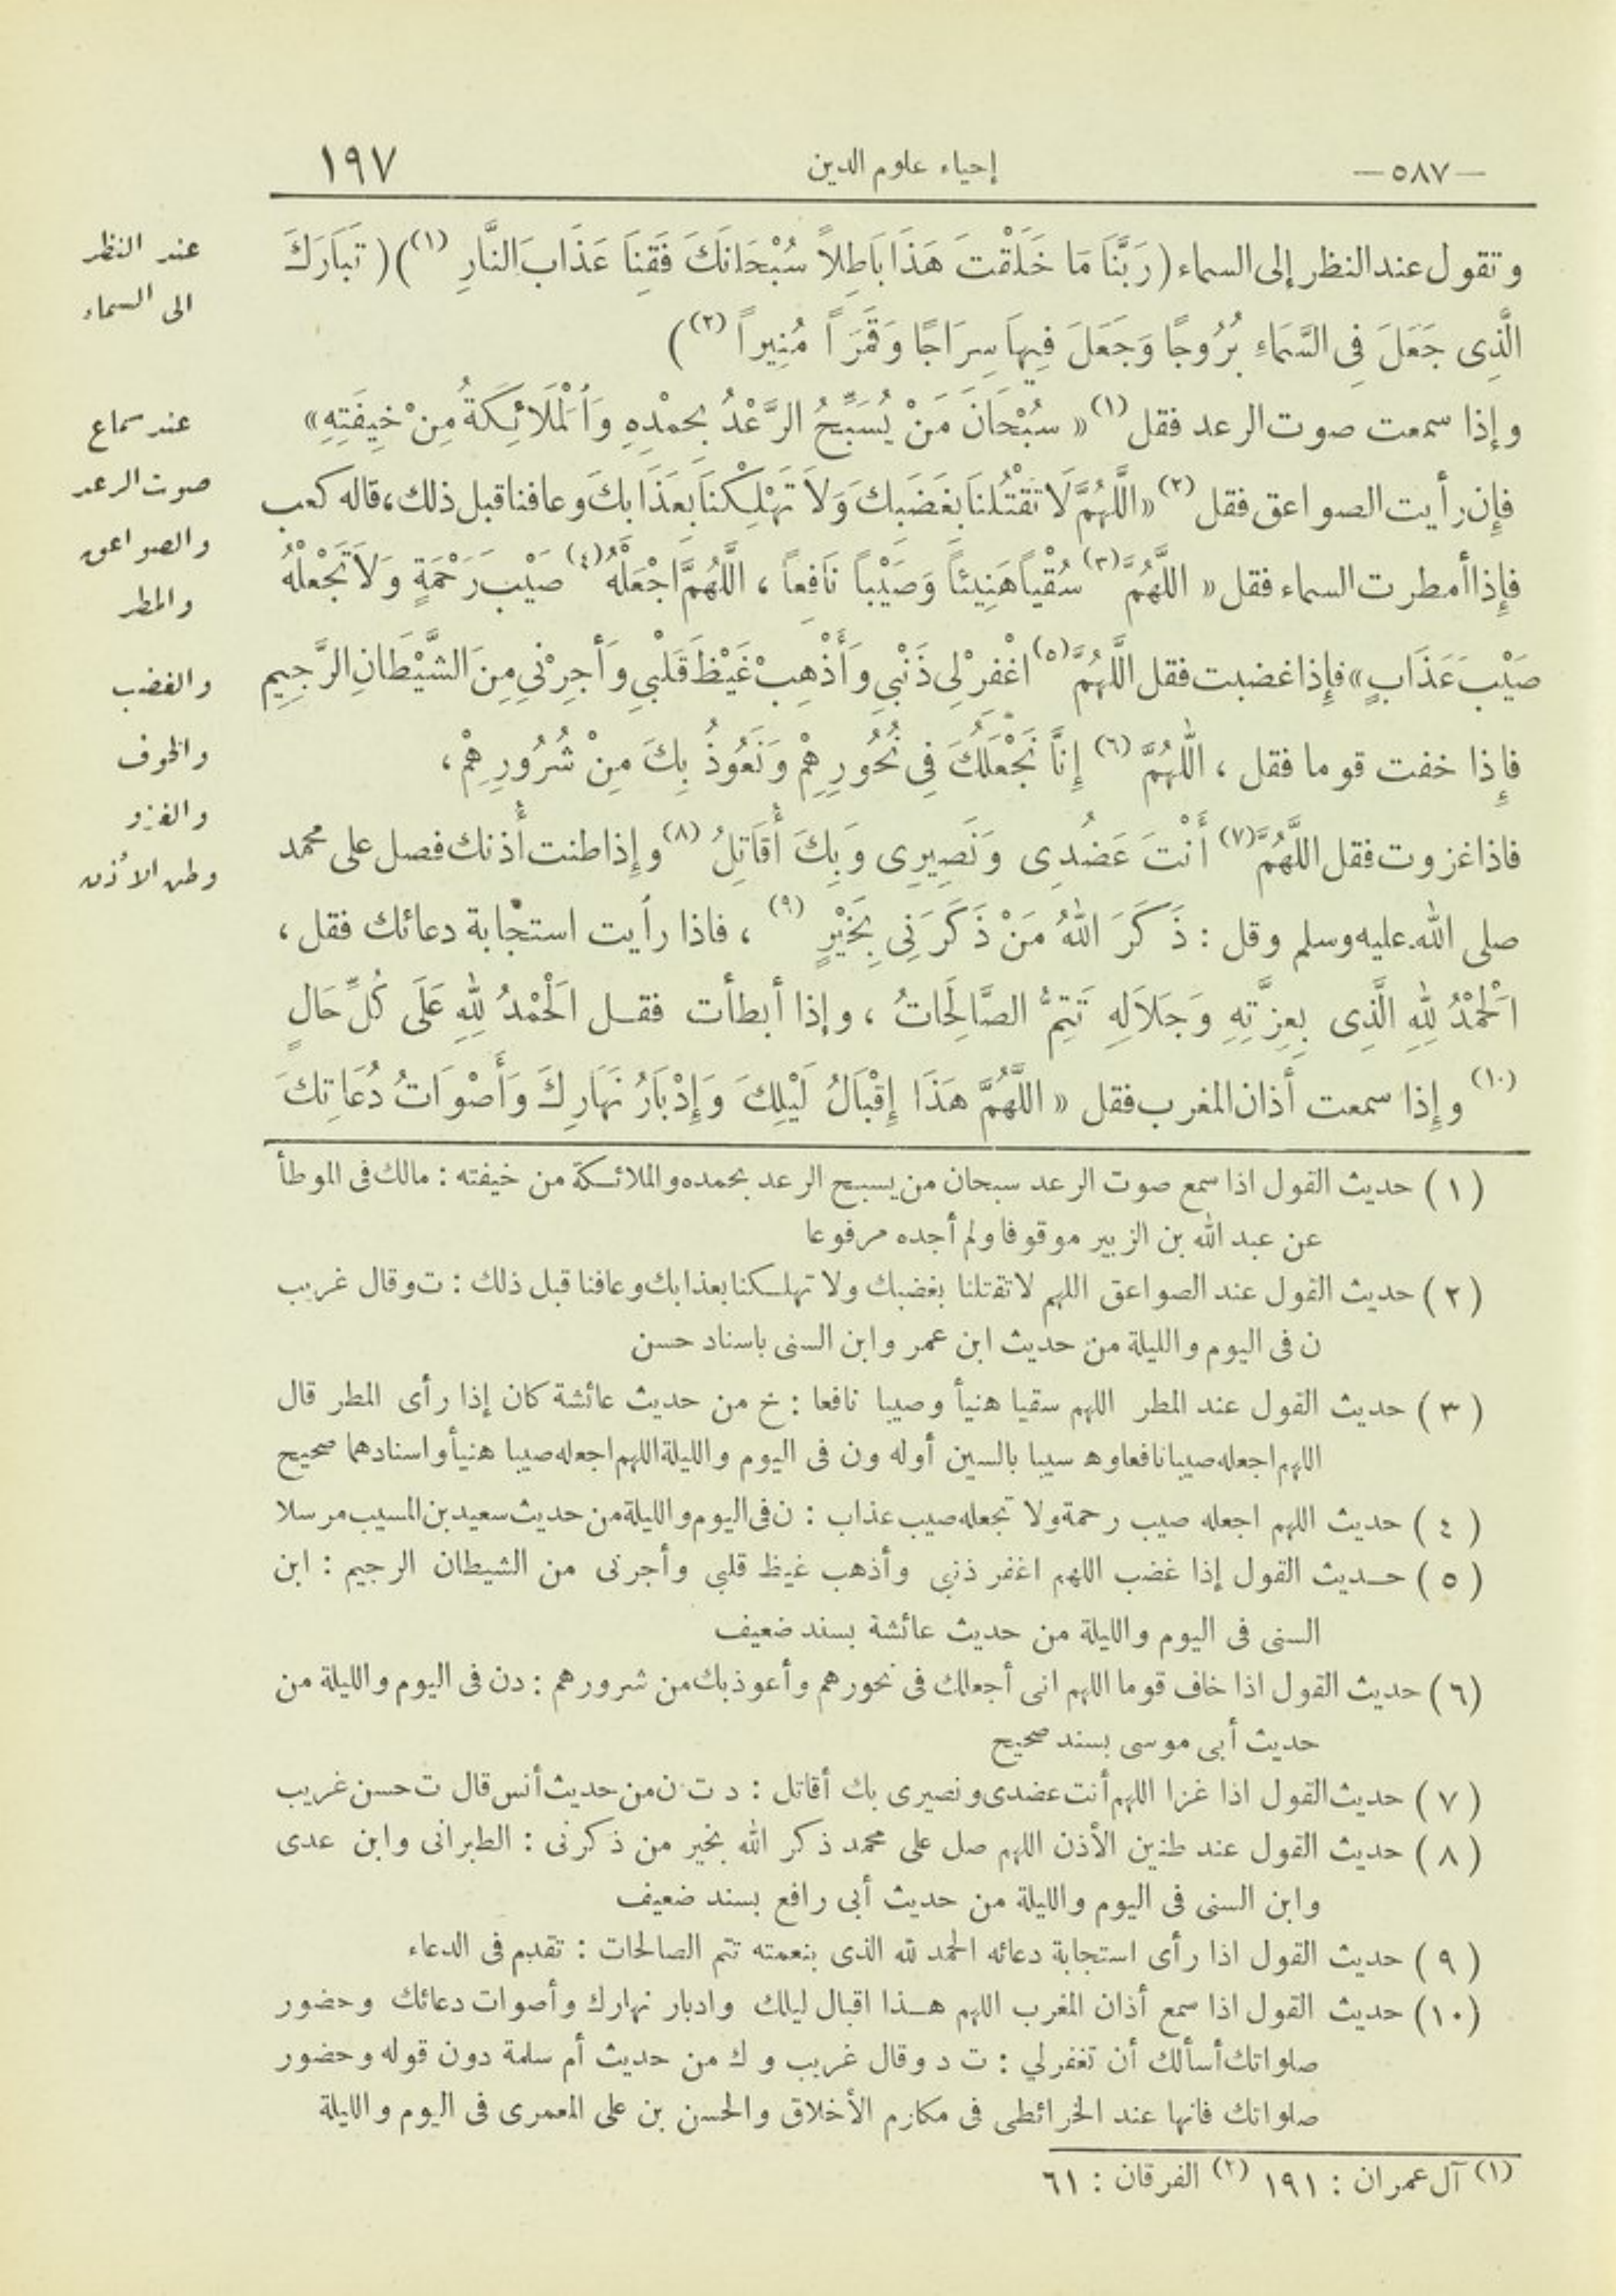 — ٥٨٧ —
إحياء علوم الدين
١٩٧
وتقول عند النظر إلى السماء ( رَبَّنَا مَا خَلَقْتَ هَذَا بَاطِلاً سُبْحَانَكَ فَقِنَا عَذَابَ النَّارِ (١) ) ( تَبَارَكَ
الَّذِى جَعَلَ فِى السَّمَاءِ بُرُوجًا وَجَعَلَ فِيهَا سِرَاجًا وَقَمَرَاً مُنِيراً (٢) )
وإذا سمعت صوت الرعد فقل (١) « سُبْحَانَ مَنْ يُسَبِّحُ الرَّعْدُ بِحِمْدِهِ وَالْمَلَائِكَةُ مِنْ خِيفَتِهِ »
فإِن رأيت الصواعق فقل (٢) « اللَّهُمَّ لَا تَقْتُلنَا بِغَضَبِكَ وَلاَ تَهْلِكْنَا بِعَذَابِكَ وعافنا قبل ذلك ، قاله كعب
فإِذا أمطرت السماء فقل « اللَّهُمَّ (٣) سُقْيَاً هَنِيئَاً وَصَيْبَاً نَافِعاً ، اللَّهُمَّ اجْعَلْهُ (٤) صَيْبَ رَحْمَةٍ وَلَا تَجْعَلْهُ
صَيْبَ عَذَابٍ » فإِذا غضبت فقل اللَّهُمَّ (٥) اغْفِرْ لِى ذَنْبِي وَأَذْهِبْ غَيْظَ قَلْبِي وَأَجِرْنِي مِنَ الشَّيْطَانِ الرَّجِيمِ
فإِذا خفت قوما فقل ، اللّٰهُمَّ (٦) إِنَّا نَجْعَلُكَ فِى نُحُورِهِمْ وَنَعُوذُ بِكَ مِنْ شُرُورِهِمْ ،
فاذا غزوت فقل اللَّهُمَّ (٧) أَنْتَ عَضُدِى وَنَصِيرِى وَبِكَ أُقَاتِلُ (٨) وإذا طنت أذنك فصل على محمد
صلى الله عليه وسلم وقل : ذَكَرَ اللهُ مَنْ ذَكَرَنِى بِخَيْرٍ (٩) ، فاذا رأيت استجابة دعائك فقل ،
اَلْحَمْدُ لِلّٰهِ الَّذِى بِعِزَّتِهِ وَجَلَالِهِ تَتِمُّ الصَّالِحَاتُ ، وإذا أبطأت فقل اَلْحَمْدُ لِلّٰهِ عَلَى كُلِّ حَالٍ
(١٠) وإِذا سمعت أذان المغرب فقل « اللَّهُمَّ هَذَا إِقْبَالُ لَيْلِكَ وَإِدْبَارُ نَهَارِكَ وَأَصْوَاتُ دُعَاتِكَ
عند النظر
الى السماء
عند سماع
صوت الرعد
والصواعق
والمطر
والغضب
والخوف
والغزو
وطن الأذن
( ١ ) حديث القول اذا سمع صوت الرعد سبحان من يسبح الرعد بحمده والملائكة من خيفته : مالك فى الموطأ
عن عبد الله بن الزبير موقوفا ولم أجده مرفوعا
( ٢ ) حديث القول عند الصواعق اللهم لا تقتلنا بغضبك ولا تهلكنا بعذابك وعافنا قبل ذلك : ت وقال غريب
ن فى اليوم والليلة من حديث ابن عمر وابن السنى باسناد حسن
( ٣ ) حديث القول عند المطر اللهم سقيا هنيأ وصيبا نافعا : خ من حديث عائشة كان إذا رأى المطر قال
اللهم اجعله صيبا نافعا وه سيبا بالسين أوله ون فى اليوم والليلة اللهم اجعله صيبا هنيأ واسنادهما صحيح
( ٤ ) حديث اللهم اجعله صيب رحمة ولا تجعله صيب عذاب : ن فى اليوم والليلة من حديث سعيد بن المسيب مرسلا
( ٥ ) حديث القول إذا غضب اللهم اغفر ذنبى وأذهب غيظ قلبى وأجرنى من الشيطان الرجيم : ابن
السنى فى اليوم والليلة من حديث عائشة بسند ضعيف
( ٦ ) حديث القول اذا خاف قوما اللهم انى أجعلك فى نحورهم وأعوذ بك من شرورهم : د ن فى اليوم والليلة من
حديث أبى موسى بسند صحيح
( ٧ ) حديث القول اذا غزا اللهم أنت عضدى ونصيرى بك أقاتل : د ت ن من حديث أنس قال ت حسن غريب
( ٨ ) حديث القول عند طنين الأذن اللهم صل على محمد ذكر الله بخير من ذكرنى : الطبرانى وابن عدى
وابن السنى فى اليوم والليلة من حديث أبى رافع بسند ضعيف
( ٩ ) حديث القول اذا رأى استجابة دعائه الحمد لله الذى بنعمته تتم الصالحات : تقدم فى الدعاء
(١٠) حديث القول اذا سمع أذان المغرب اللهم هذا اقبال ليلك وادبار نهارك وأصوات دعائك وحضور
صلواتك أسألك أن تغفر لي : ت د وقال غريب و ك من حديث أم سلمة دون قوله وحضور
صلواتك فانها عند الخرائطى فى مكارم الأخلاق والحسن بن على المعمرى فى اليوم والليلة
(١) آل عمران : ١٩١ (٢) الفرقان : ٦١